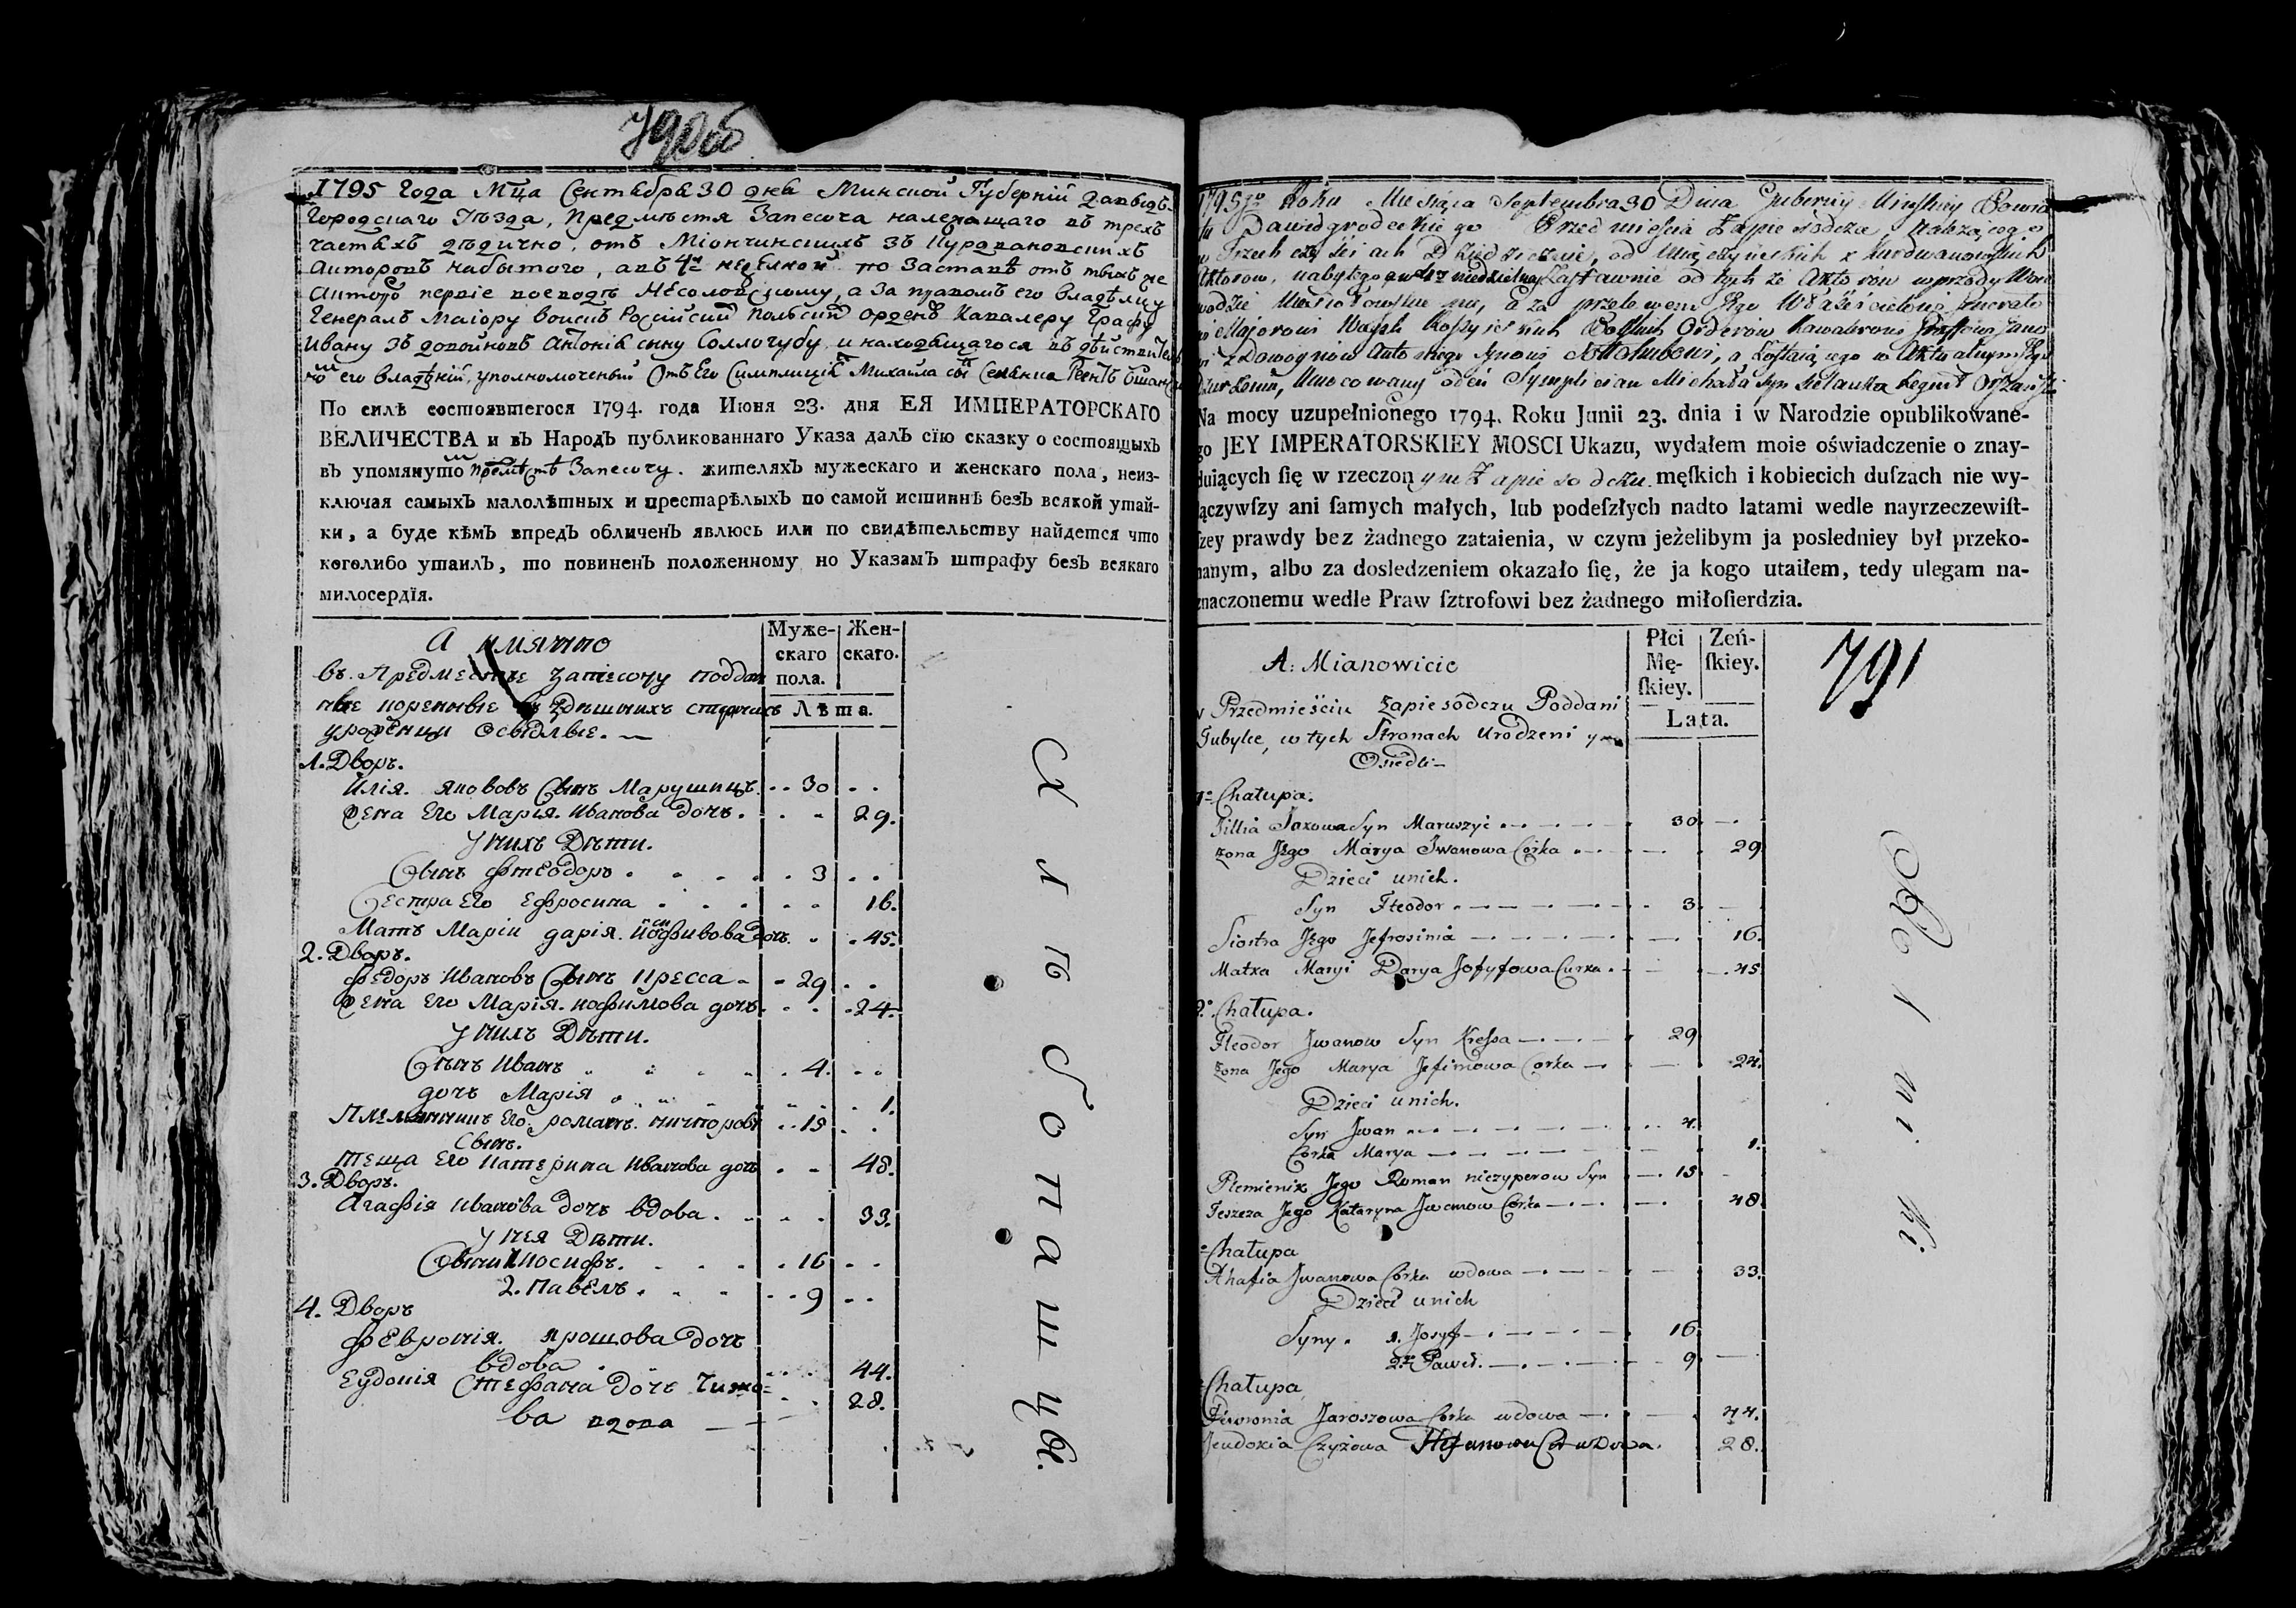 790об
1795 Года Мца Сентября 30 дня Минской Губерніи Давыдъ-
Городскаго Уѣзда, Предмѣстя Запесоча належащаго въ трехъ
частяхъ дѣдично, отъ Міончинскихъ зъ Курдвановскихъ
Акторовъ набытого, а въ 4й недѣлной по Заставѣ отъ тыхъ же
Акторо первіе воеводѣ Несоловскому, а за правомъ его Владѣлцу
Генералъ Маіору воискъ Росийски Полскихъ Орденъ Кавалеру Графу
Ивану зъ довойновъ Антонія сыну Соллогубу и находящагося въ дѣйствител
но его владѣніи, уполномоченый Отъ Его Симплиціа Михаила сы Селянка Регентъ Ошан
По силѣ состоявшегося 1794. года Июня 23. дня ЕЯ ИМПЕРАТОРСКАГО
ВЕЛИЧЕСТВА и въ Народъ публикованнаго Указа далъ сїю сказку о состоящыхъ
въ упомянуто Предмѣстѣ Запесочу. жителяхъ мужескаго и женскаго пола, неиз-
ключая самыхъ малолѣтных и престарѣлыхъ по самой истиннѣ безъ всякой утай-
ки, а буде кѣмъ впредъ обличенъ явлюсь или по свидѣтельству найдется что
коголибо утаилъ, то повиненъ положенному по Указамъ штрафу безъ всякаго
милосердїя.
А имянно
Муже-
скаго
пола.
Жен-
скаго.
Лѣта.
въ Предместѣе Запесочу поддан
ные коренные въ здѣшнихъ сторонахъ
уроженци Осѣдлые.
1. Дворъ.
Илія. Якововъ Сынъ Марушицъ. 30
Жена Его Марія. Иванова дочъ. 29.
У нихъ Дѣти.
Сынъ Фтеодоръ. 3
Сестра Его Ефросина 16.
Матъ Маріи дарія. Иосифивова дочъ. 45.
2. Дворъ.
Федоръ Ивановъ Сынъ Кресса 29
Жена Его Марія. иофимова дочъ. 24.
У нихъ Дѣти.
Сынъ Иванъ 4.
дочъ Марія 1.
Племянникъ Его. романъ. ничпоровъ 15
Сынъ.
теща Его Катерина Иванова дочъ 48.
3. Дворъ.
Агафія Иванова дочъ вдова. 33.
У нея Дѣти.
Сыни 1 Иосифъ. 16
2. Павелъ. 9
4. Дворъ
Февронія. Ярошова дочъ
вдова 44.
Еудокія Стефана дочъ Чижо- 28.
ва вдова
Скльбопашцы.
1795go Roku Miesiąca Septembra 30 Dnia Guberniy Minskiey Powia
tu Dawidgrodeckiego Przedmieścia Zapiesodcza, Należącego
w Trzech częściach Dziedzicznie, od Miączyńskich z Kurdwanowskich
Aktorow, nabytego a w 4ty niedzielney Zastawnie od tych że Aktorów wprzódy Woie
wodzie Niesiołowskiemu, a za przelewem Jego Właścicielowi Generało
wi Majorowi Woysk Rossyiskich Polskich Orderow Kawalerowi Graffowi Jano
wi z Dowoynow Antoniego synowi Sollohubowi, a zostaiącego w Aktualnym Jego
Dzierżeniu, Umocowany od niego Symplician Michała syn Sielauka Regent Orszański
Na mocy uzupełnionego 1794. Roku Junii 23. dnia i w Narodzie opublikowane-
go JEY IMPERATORSKIEY MOSCI Ukazu, wydałem moie oświadczenie o znay-
duiących ſię w rzeczonym Zapiesodczu męſkich i kobiecich duſzach nie wy-
ączywſzy ani ſamych małych, lub podeſzłych nadto latami wedle nayrzeczewiſt-
ſzey prawdy bez żadnego zataienia, w czym jeżelibym ja posledniey był przeko-
nanym, albo za dosledzeniem okazało ſię, że ja kogo utaiłem, tedy ulegam na-
znaczonemu wedle Praw ſztrofowi bez żadnego miłoſierdzia.
A: Mianowicie
Płci
Mę-
ſkiey.
Zeń-
ſkiey.
Lata.
791
w Przedmieściu Zapiesodczu Poddani
Tubylce, w tych Stronach Urodzeni y
Osiedli
1o Chałupa.
Jillia Jakowa Syn Maruszyc 30
Zona Jego Marya Jwanowa Corka 29
Dzieci unich.
Syn Fteodor 3
Siostra Jego Jefrosinia 16.
Matka Maryi Darya Jozyfowa Curka 45
2o Chałupa.
Fteodor Jwanow Syn Kressa 29
Zona Jego Marya Jefimowa Corka 24.
Dzieci unich.
Syn Jwan 4.
Corka Marya 1.
Plemienik Jego Roman niczyperow Syn 15
Teszcza Jego Kataryna Jwanow Corka 48.
Chałupa
Ahafia Jwanowa Córka wdowa 33.
Dzieci unich
Syny. 1. Josyf 16
2. Paweł. 9
Chałupa
Fewronia Jaroszowa Corka wdowa 44.
Jeudokia Czyżowa Stefanowa C wdowa. 28.
Rolniki